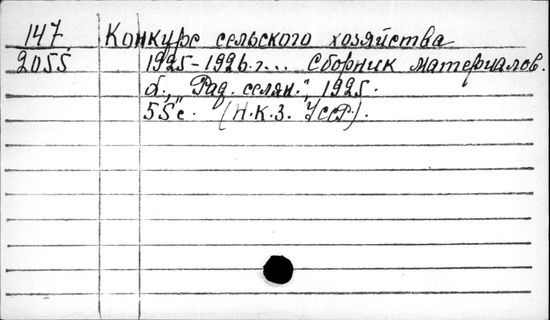 147 Конкурс сельского хозяйства
2055 1925-1926 г... Сборник материалов.
"Рад. селян.", 1925.
55 с. (Н.К.З. УССР).